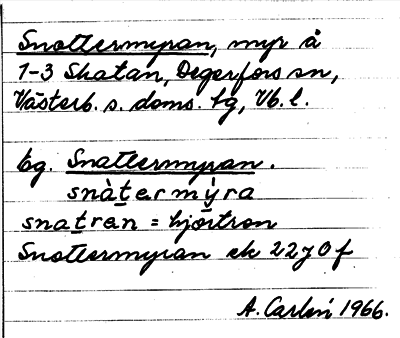 Snottermyran, myr å
1-3 Skatan, Degerfors sn,
Västerb. s. doms. tg, Vb. l.
bg. Snattermyran.
snàtermýra
snatren = hjortron
Snottermyran ek 22J0f
A. Carlén 1966.